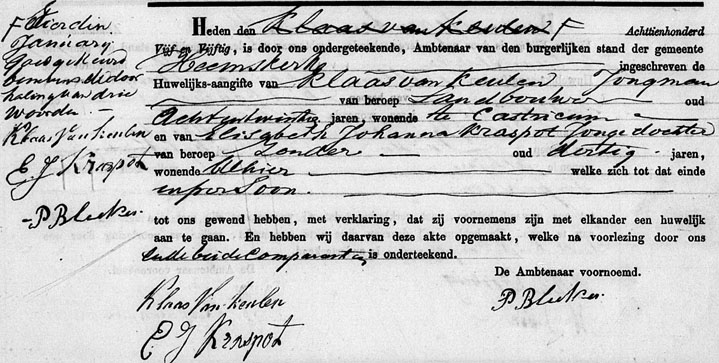 F Vierden
January
Goedgekeurd
benevens de door
haling van drie
woorden
Klaas Van Keulen
E J Kraspot
P Bleeker
Heden den Klaas van Keulen F Achttienhonderd
Vijf en Vijftig, is door ons ondergeteekende, Ambtenaar van den burgerlijken stand der gemeente
Heemskerk ingeschreven de
Huwelijks-aangifte van Klaas van Keulen Jongman
van beroep Landbouwer oud
Achtentwintig jaren, wonende te Castricum
en van Elisabeth Johanna Kraspot Jonge dochter
van beroep Zonder oud dertig jaren,
wonende Alhier welke zich tot dat einde
in persoon
tot ons gewend hebben, met verklaring, dat zij voornemens zijn met elkander een huwelijk
aan te gaan. En hebben wij daarvan deze akte opgemaakt, welke na voorlezing door ons
en de beide Comparanten is onderteekend.
De Ambtenaar voornoemd.
Klaas Van Keulen
P Bleeker
E J Kraspot